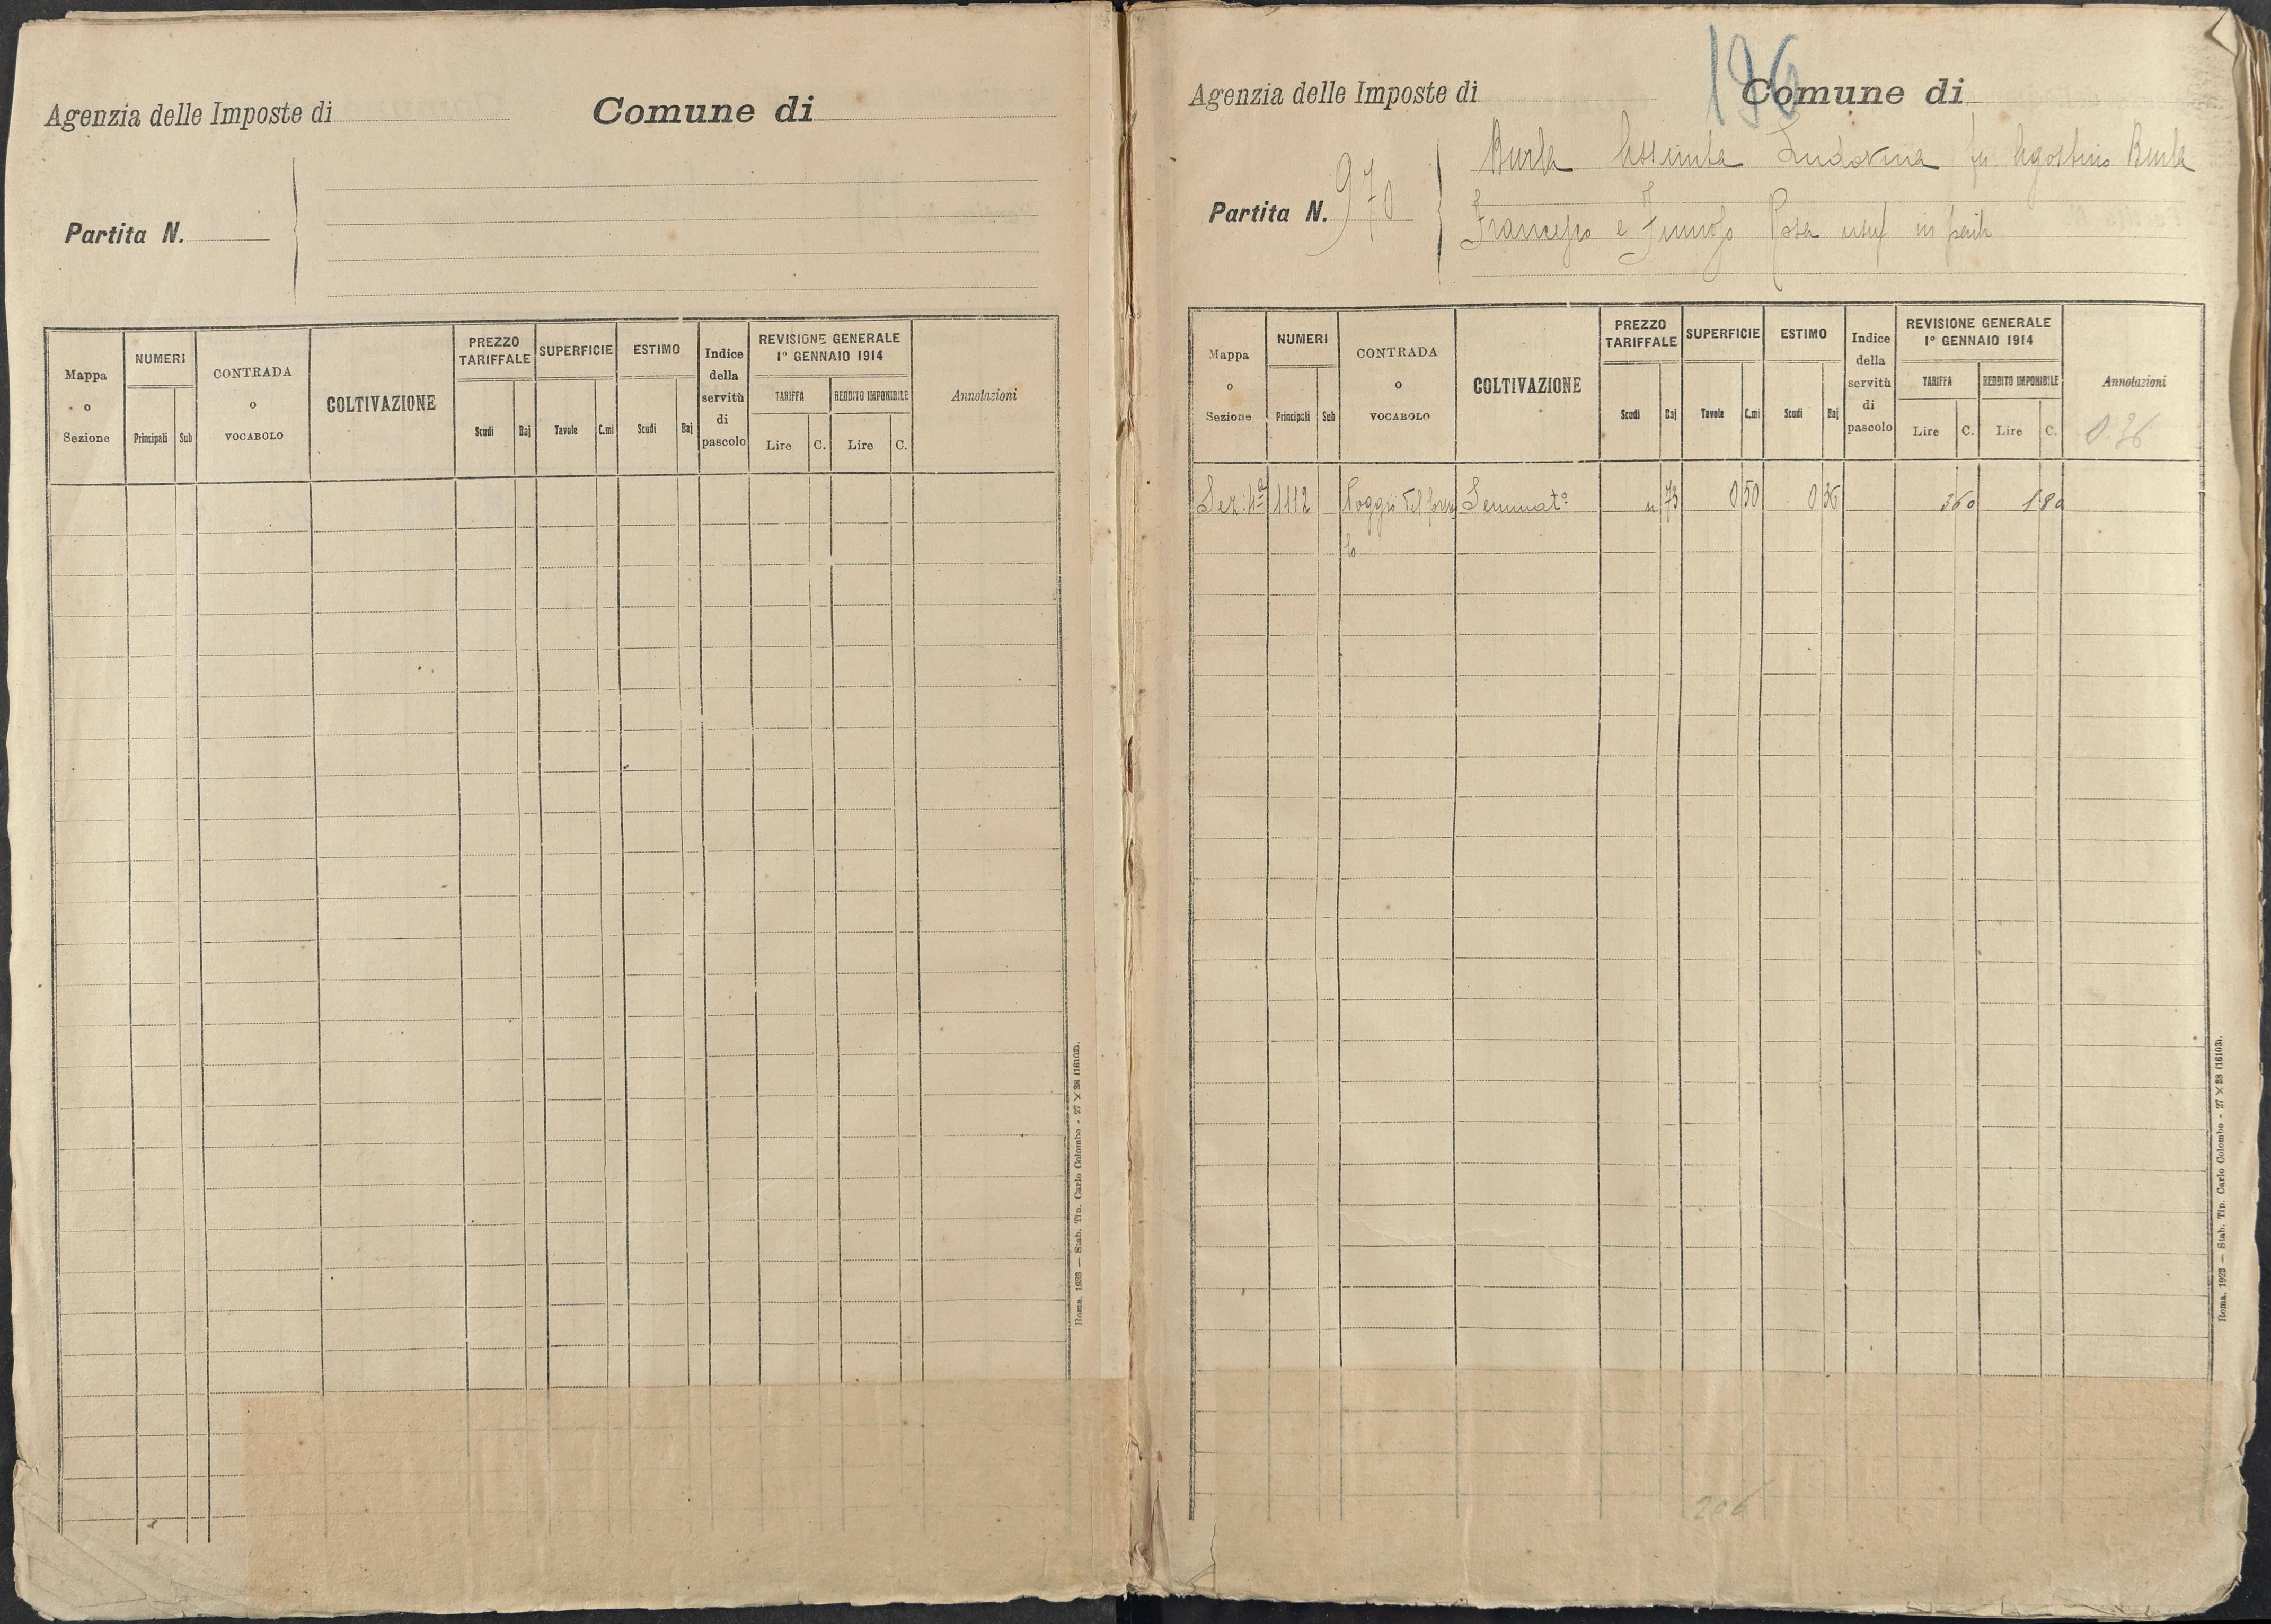 Agenzia delle Imposte di
Comune di
Partita N.
Mappa o Sezione
NUMERI
Principali Sub
CONTRADA o VOCABOLO
COLTIVAZIONE
PREZZO TARIFFALE
Scudi Baj
SUPERFICIE
Tavole C.mi
ESTIMO
Scudi Baj
Indice della servitù di pascolo
REVISIONE GENERALE
1° GENNAIO 1914
TARIFFA REDDITO IMPONIBILE
Lire C. Lire C.
Annotazioni
Roma, 1923 — Stab. Tip. Carlo Colombo - 27 X 38 (16103).
196
Agenzia delle Imposte di
Comune di
Burla Assunta Ludovina fu Agostino Burla
Partita N. 970
Francesco e Rosa usuf in parte
Mappa o Sezione
NUMERI
Principali Sub
CONTRADA o VOCABOLO
COLTIVAZIONE
PREZZO TARIFFALE
Scudi Baj
SUPERFICIE
Tavole C.mi
ESTIMO
Scudi Baj
Indice della servitù di pascolo
REVISIONE GENERALE
1° GENNAIO 1914
TARIFFA REDDITO IMPONIBILE
Lire C. Lire C.
Annotazioni
0.36
Sez. 4ª 1112 Poggio del Seminat° " 73 0 50 0 36 3 60 1 80
lo
206
Roma, 1923 — Stab. Tip. Carlo Colombo - 27 X 38 (16103).